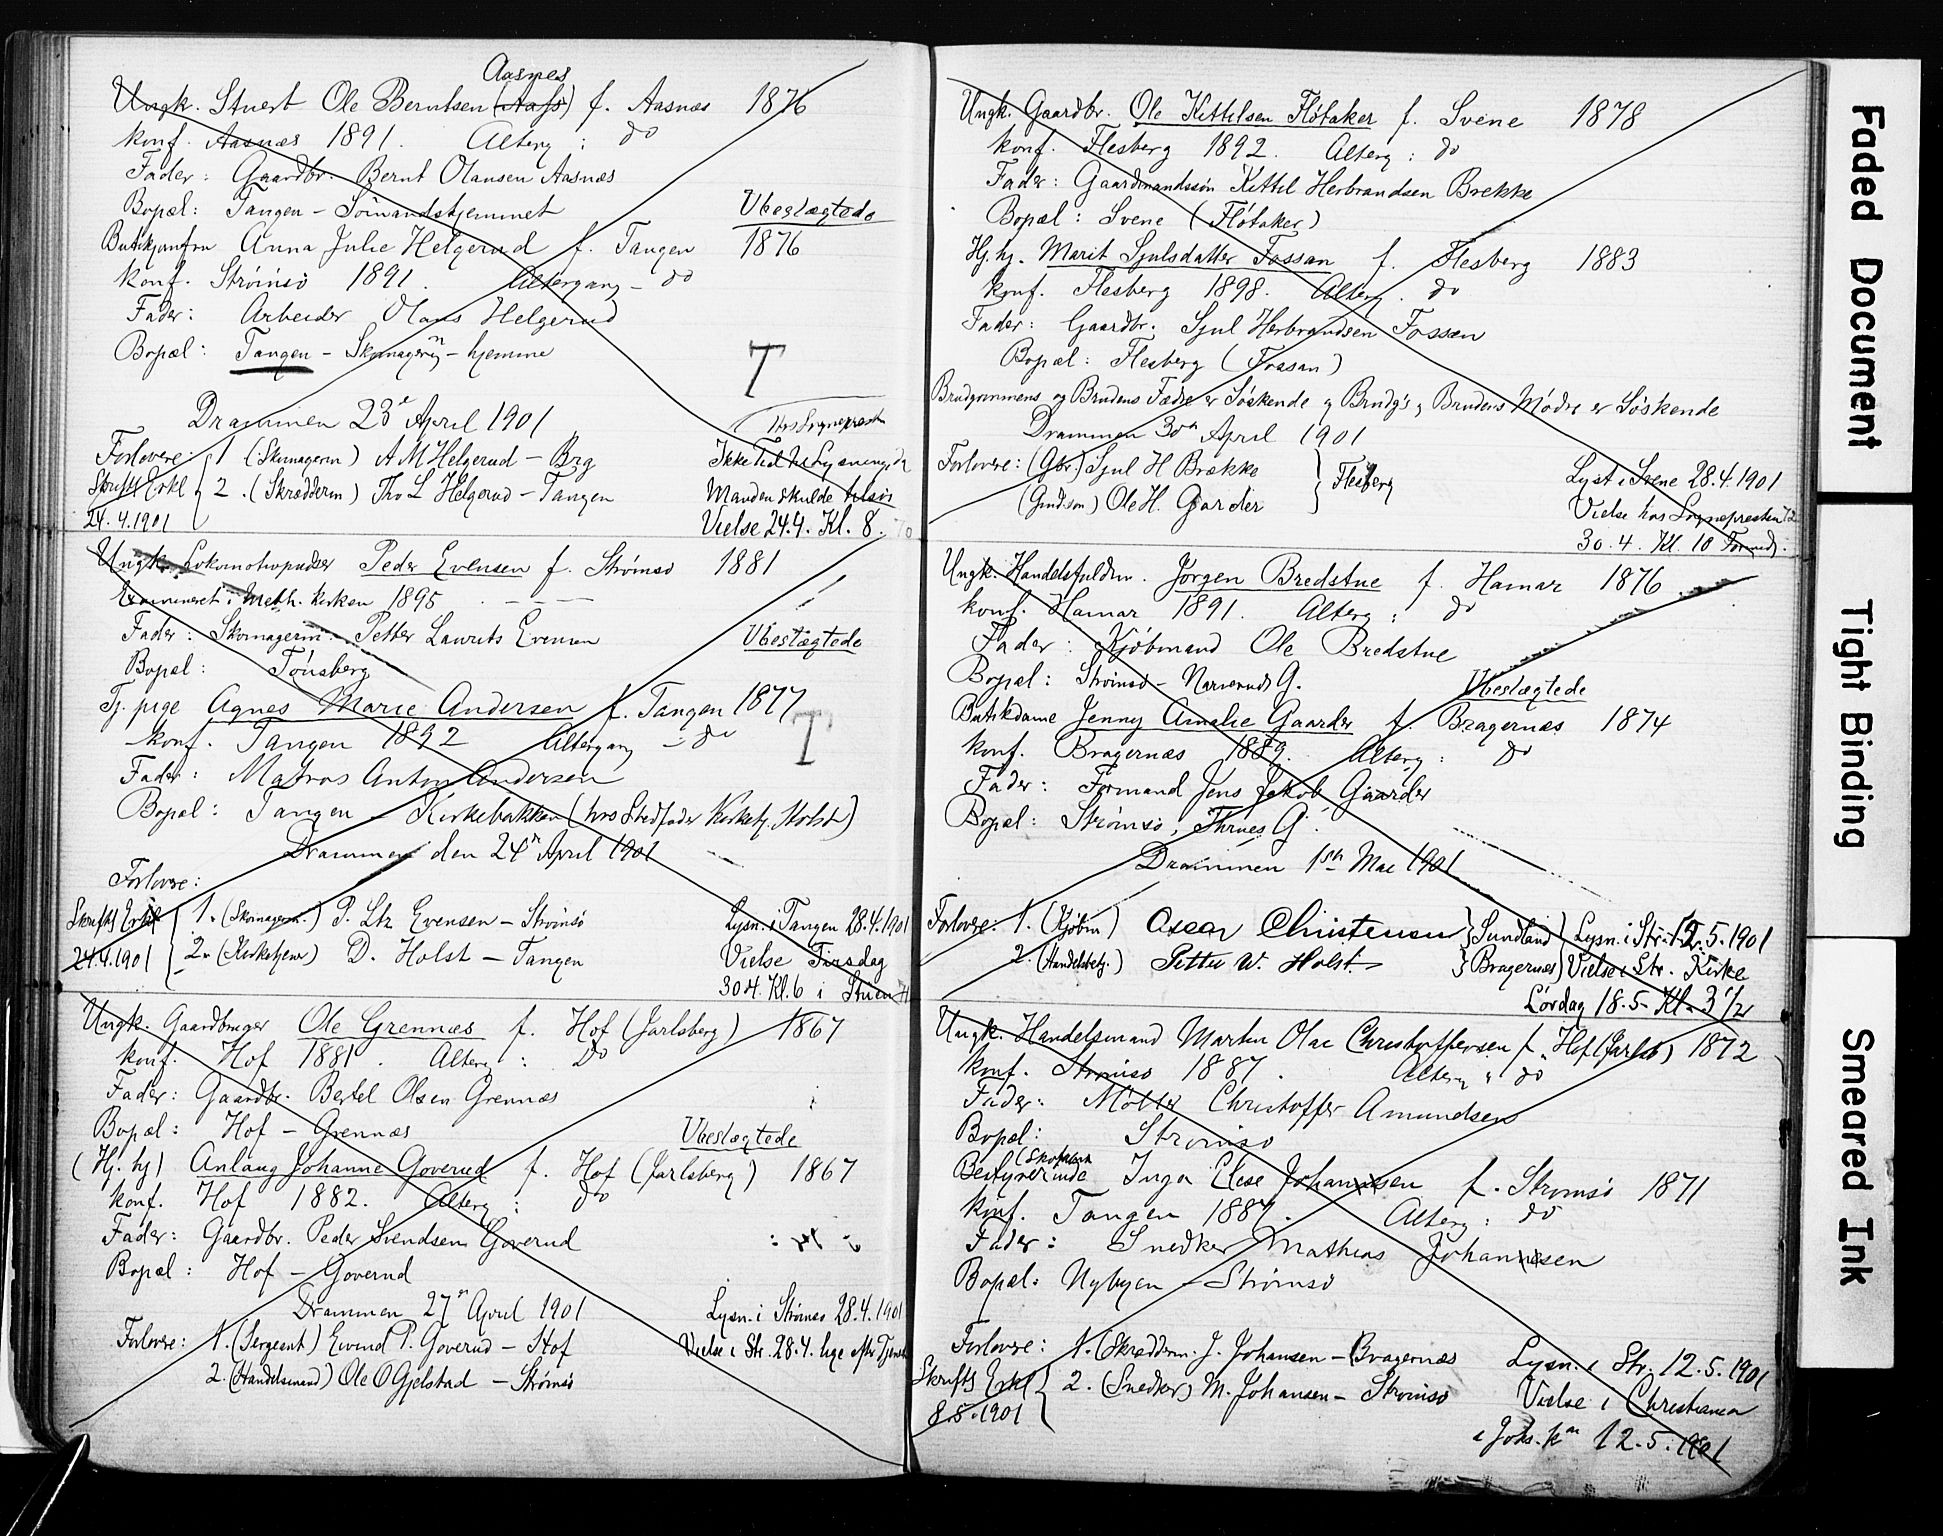 Aasnes
Ungk. Stuert Ole Berntsen (Aass) f. Aasnæs 1876
konf. Aasnæs 1891. Alterg : do
Fader : Gaardbr. Bernt Olausen Aasnæs
Bopæl : Tangen - Sømandshjemmet Ubeslægtede
Butikjomfru Anna Julie Helgerud f. Tangen 1876
konf. Strømsø 1891. Altergang - do
Fader : Arbeider Olaus Helgerud
Bopæl : Tangen - hjemme
T
Drammen 23de April 1901 hos Sognepresten
Forlovere : 1 (Skomagerm) A M Helgerud - Brg Ikke Tid til Lysning, da
Skriftl Erkl 2. (Skrædderm) Thv L Helgerud - Tangen Manden skulde tilsøs
24.4.1901 Vielse 24.4. Kl. 8.
Ungk. Lokomotivpudser Peder Evensen f. Strømsø 1881
i Meth. kirken 1895 . - - -
Fader : Skomagerm. Petter Laurits Evensen Ubeslægtede
Bopæl : Tønsberg
Tj. pige Agnes Marie Andersen f. Tangen 1877
konf. Tangen 1892 Altergang - do T
Fader : Matros Anton Andersen
Bopæl : Tangen - Kirkebakken (hos Stedfader Kirketj. Holst)
Drammen den 24de April 1901
Forlovere :
Skriftl Erkl 1. (Skomagerm.) P. Ltz Evensen - Strømsø Lysn. i Tangen 28.4.1901
24.4.1901 2. (Kirketjener) D. Holst - Tangen Vielse Tirsdag
30.4. Kl. 6 i
Ungk. Gaardbruger Ole Grennæs f. Hof (Jarlsberg) 1867
konf. Hof 1881. Alterg : Do
Fader : Gaardbr. Bertel Olsen Grennæs
Bopæl : Hof - Grennæs Ubeslægtede
(Hj. hj) Anlaug Johanne Goverud f. Hof (Jarlsberg) 1867
konf. Hof 1882. Alterg : do
Fader : Gaardbr. Peder Svendsen Goverud
Bopæl : Hof - Goverud
Drammen 27de April 1901 Lysn. i Strømsø 28.4.1901
Forlovere : 1. (Sergeant) Eivind P. Goverud - Hof Vielse i Str. 28.4. lige efter
2. (Handelsmand) Ole O Gjelstad - Strømsø
Ungk. Gaardbr. Ole Kittilsen Fløtaker f. Svene 1878
konf. Flesberg 1892. Alterg : do
Fader : Gaardmandssøn Kittil Herbrandsen Brekke
Bopæl : Svene (Fløtaker)
Hj. hj. Marit Sjulsdatter Fossan f. Flesberg 1883
konf. Flesberg 1898. Alterg. do
Fader : Gaardbr. Sjul Herbrandsen Fossan
Bopæl : Flesberg (Fossan)
Brudgommens og Brudens Fædre er Søskende og Brudg's og Brudens Mødre er Søskende
Drammen 30de April 1901
Forlovere : (Gbr.) Sjul H Brække Flesberg Lyst i Svene 28.4.1901
Ole H. Gjarder Vielse hos Sognepresten
30.4. Kl. 10 Formd.
Ungk. Handelsfuldm. Jørgen Bredstue f. Hamar 1876
konf. Hamar 1891. Alterg : do
Fader : Kjøbmand Ole Bredstue
Bopæl : Strømsø - G. Ubeslægtede
Butikdame Jenny Amalie Gaarder f. Bragernæs 1874
konf. Bragernæs 1889. Alterg : do
Fader : Formand Jens Jakob Gaarder
Bopæl : Strømsø, Thrues G.
Drammen 1ste Mai 1901
Forlovere : 1. (Kjøbm) Oscar Christensen } Sundland Lysn. i Str. 12.5.1901
2. (Handelsbetj.) Petter W. Holst. } Bragernæs Vielse i Str. Kirke
Lørdag 18.5. Kl. 3 1/2
Ungk. Handelsmand Martin Olai Christoffersen f. Hof (Jarlsb) 1872
konf. Strømsø 1887. Alterg : do
Fader : Møller Christoffer Amundsen
Bopæl : Strømsø
Bestyrerinde Inga Elise Johannsen f. Strømsø 1871
konf. Tangen 1887. Alterg : do
Fader : Snedker Mathias Johannsen
Bopæl : Nybyen - Strømsø
Forlovere : 1. (Skrædderm. J. Johansen - Bragernæs Lysn. i Str. 12.5.1901
Skriftl Erkl 2. (Snedker) M. Johansen - Strømsø Vielse i Christiania
8.5.1901 i Johs. kn 12.5.1901
Faded Document
Tight Binding
Smeared Ink